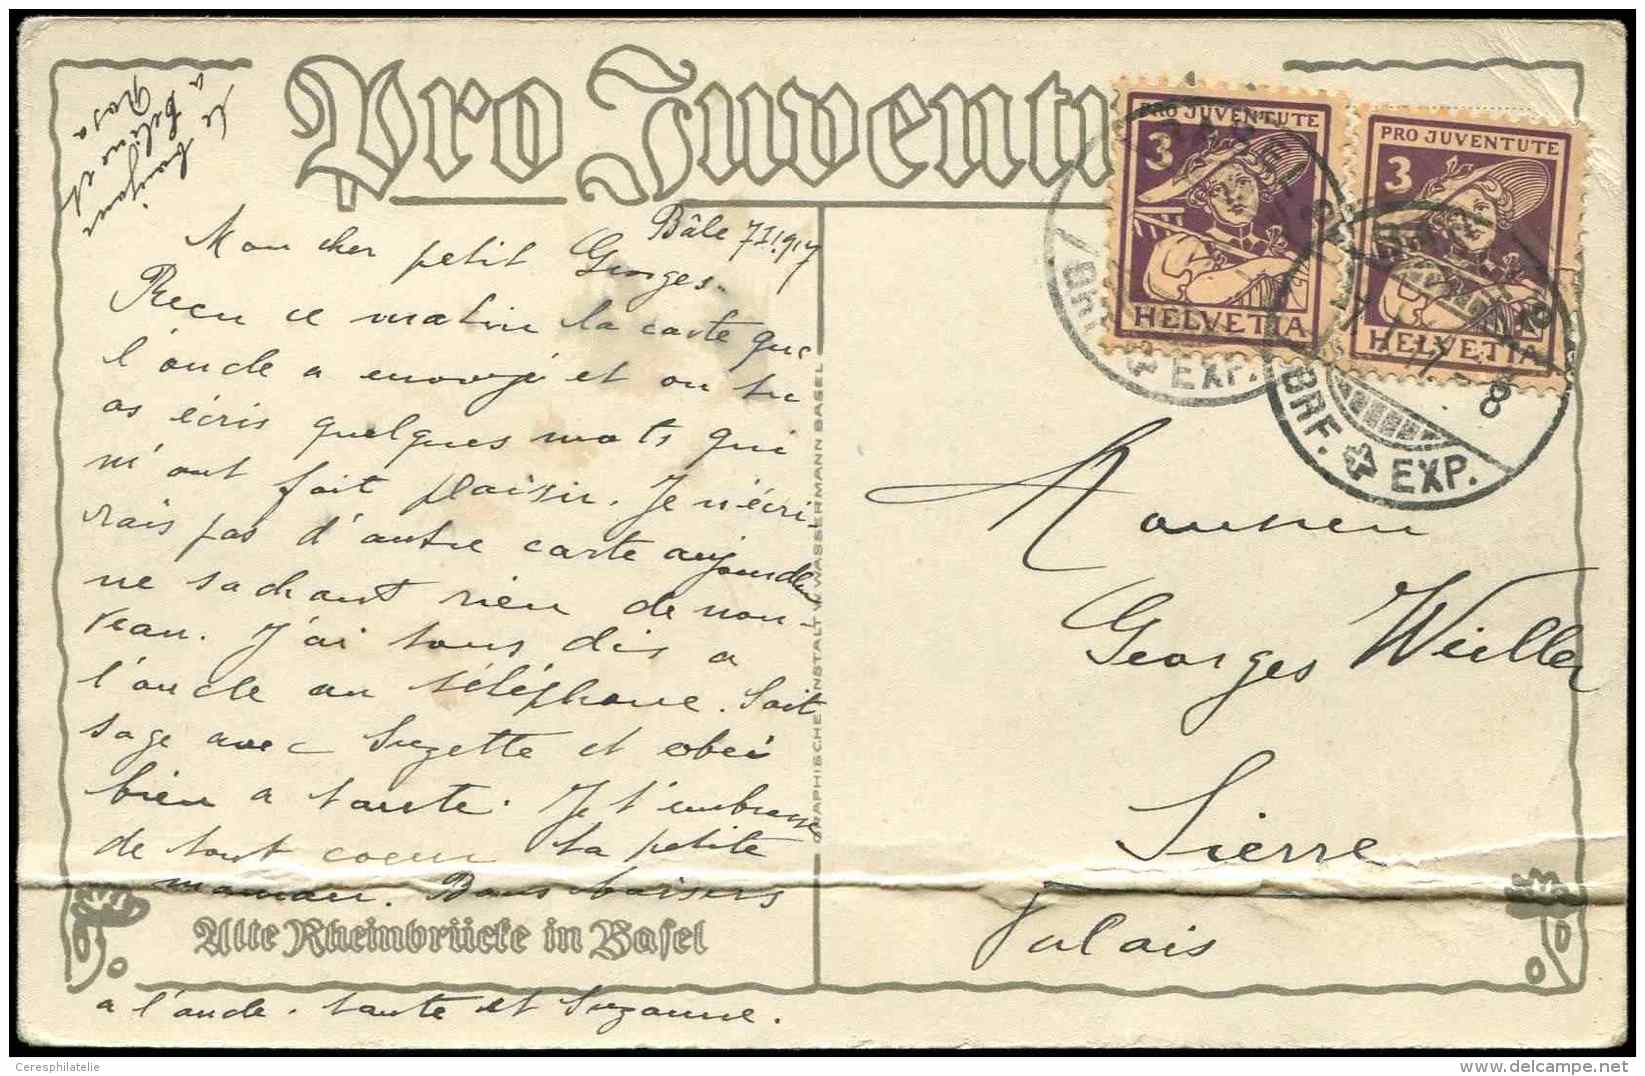 Pro Juventu
PRO JUVENTUTE
3
HELVETIA
PRO JUVENTUTE
3
HELVETIA
BRF. EXP.
BRF. EXP.
8
le bonjour
a Célino et
Rosa
Bâle 7 I 1917
Mon cher petit Georges.
Reçu ce matin la carte que
l'oncle a envoyé et ou tu
as écris quelques mots qui
m'ont fait plaisir. Je n'écri-
rais pas d'autre carte aujourd'hui
ne sachant rien de nou-
veau. J'ai tous dis a
l'oncle au téléphone. Soit
sage avec Suzette et obéi
bien a tante. Je t'embrasse
de tout coeur ta petite
maman. Bons baisers
Alte Rheinbrücke in Basel
a l'oncle. tante et Suzanne.
GRAPHISCHE ANSTALT W. WASSERMANN BASEL
Monsieur
Georges Weiller
Sierre
Valais
Ceresphilatelie
delcampe.net